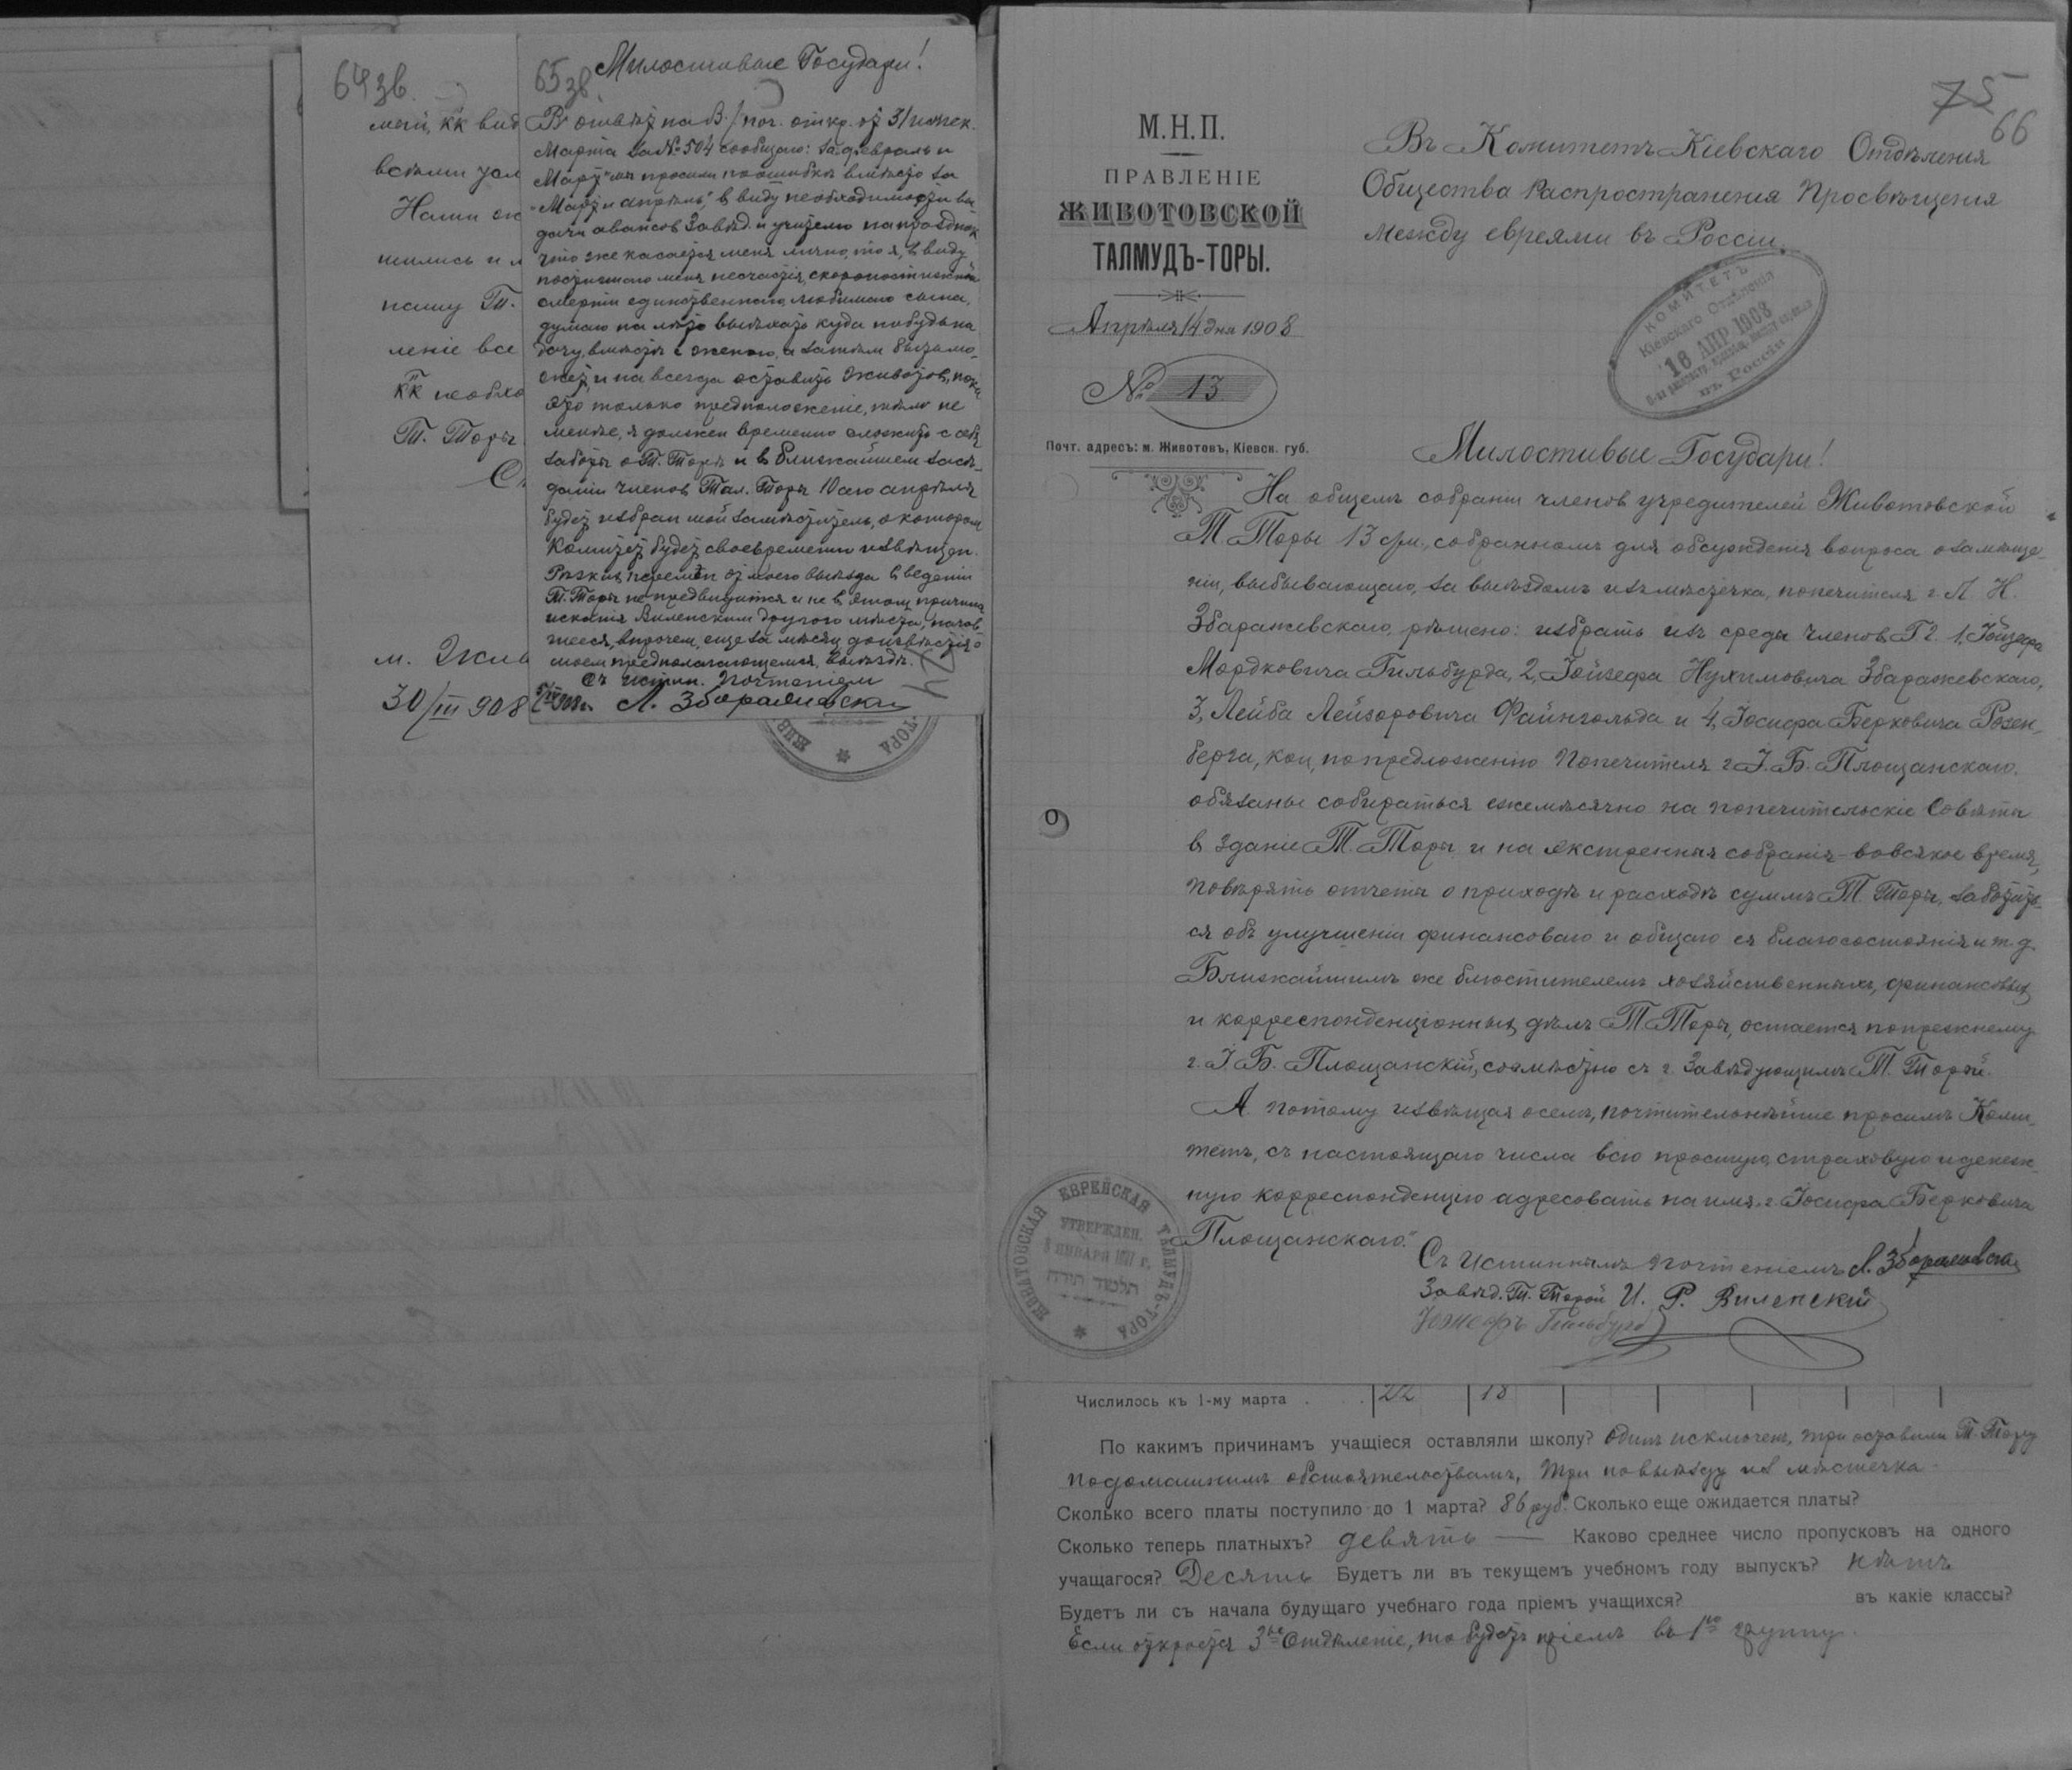 64зв.
мой, КК вид
всѣми зал
Наши ок
шились и л
нашу Т.
леніе все
КК необхо
Т. Торы
м. Жив
30/III 908
65зв.
Милостивые Государи!
В отвѣт на В./поч. откр. от 31 истек.
Марта за № 504 сообщаю: за „февраль и
Март" мы просили по ошибкѣ вмѣсто за
„Март и апрѣль", в виду необходимости вы
дачи авансов Завѣд. и учителю на праздник
что же касается меня лично, то я, в виду
постигшаго меня несчастія, скоропостижной
смерти единственнаго, любимаго сына,
думаю на лѣто выѣхать куда нибудь на
дачу, вмѣстѣ с женою, а затѣм быть мо-
жет, и на всегда оставить Животов, пока
это только предположеніе, тѣм не
менѣе, я должен временно сложить с себя
заботы о Т. Торѣ и в ближайшем засѣ-
даніи членов Тал. Торы 10 сего апрѣля
будет избран мой замѣститель, о котором
Комитет будет своевременно извѣщен.
Рѣзких перемѣн от моего выѣзда в веденіи
Т. Торы не предвидится и не в этом причина
исканія Виленским другого мѣста, начав
шееся, впрочем, еще за мѣсяц до извѣстія о
моем предполагающемся выѣздѣ.
Съ истин. почтеніем
5/IV 908 г. Л. Збаражевскій
ЖИВ
ТОРА
75
66
М.Н.П.
ПРАВЛЕНІЕ
ЖИВОТОВСКОЙ
ТАЛМУДЪ-ТОРЫ.
Апрѣля 14 дня 1908
№ 13
Почт. адресъ: м. Животовъ, Кіевск. губ.
Въ Комитетъ Кіевскаго Отдѣленія
Общества Распространенія Просвѣщенія
между евреями въ Россіи.
КОМИТЕТЪ
Кіевскаго Отдѣленія
16 АПР 1908
въ Россіи
Милостивые Государи!
На общемъ собраніи членов учредителей Животовской
Т. Торы 13 с/м., собранномъ для обсужденія вопроса о замѣще-
ніи, выбывающаго, за выѣздомъ изъ мѣстечка, попечителя г. Л. Н.
Збаражевскаго, рѣшено: избрать изъ среды членов Г г. 1, Іойзефа
Мордковича Гильбурда, 2, Іойзефа Нухимовича Збаражевскаго,
3, Лейба Лейзоровича Файнгольда и 4, Іосифа Берковича Розен-
берга, кои, по предложенію Попечителя г. І. Б. Площанскаго,
обязаны собираться ежемѣсячно на попечительскіе Совѣты
в зданіе Т. Торы и на экстренныя собранія во всякое время,
повѣрять отчеты о приходѣ и расходѣ суммъ Т. Торы, заботить-
ся объ улучшеніи финансоваго и общаго ея благосостоянія и т. д.
Ближайшимъ же блюстителемъ хозяйственныхъ, финансовых
и корреспонденціонных дѣлъ Т. Торы, остается попрежнему
г. І. Б. Площанскій, совмѣстно съ г. Завѣдующимъ Т. Торой.
А потому извѣщая о семъ, почтительнѣйше просимъ Коми-
тетъ, съ настоящаго числа всю простую, страховую и денеж-
ную корреспонденцію адресовать на имя „г. Іосифа Берковича
Площанскаго."
Съ истиннымъ почтеніемъ Л. Збаражевскій
Завѣд. Т. Торой И. Р. Виленскій
Гильбурд
ЖИВОТОВСКАЯ ЕВРЕЙСКАЯ ТАЛМУДЪ-ТОРА
УТВЕРЖДЕН.
תלמוד תורה
Числилось къ 1-му марта . . 22 18
По какимъ причинамъ учащіеся оставляли школу? Одинъ исключенъ, три оставили Т. Тору
по домашнимъ обстоятельствамъ, три по выѣзду из мѣстечка.
Сколько всего платы поступило до 1 марта? 86 руб. Сколько еще ожидается платы?
Сколько теперь платныхъ? девять — Каково среднее число пропусковъ на одного
учащагося? Десять Будетъ ли въ текущемъ учебномъ году выпускъ? нѣтъ
Будетъ ли съ начала будущаго учебнаго года пріемъ учащихся? въ какіе классы?
Если откроется 3ье Отдѣленіе, то будетъ пріемъ въ 1ую группу.